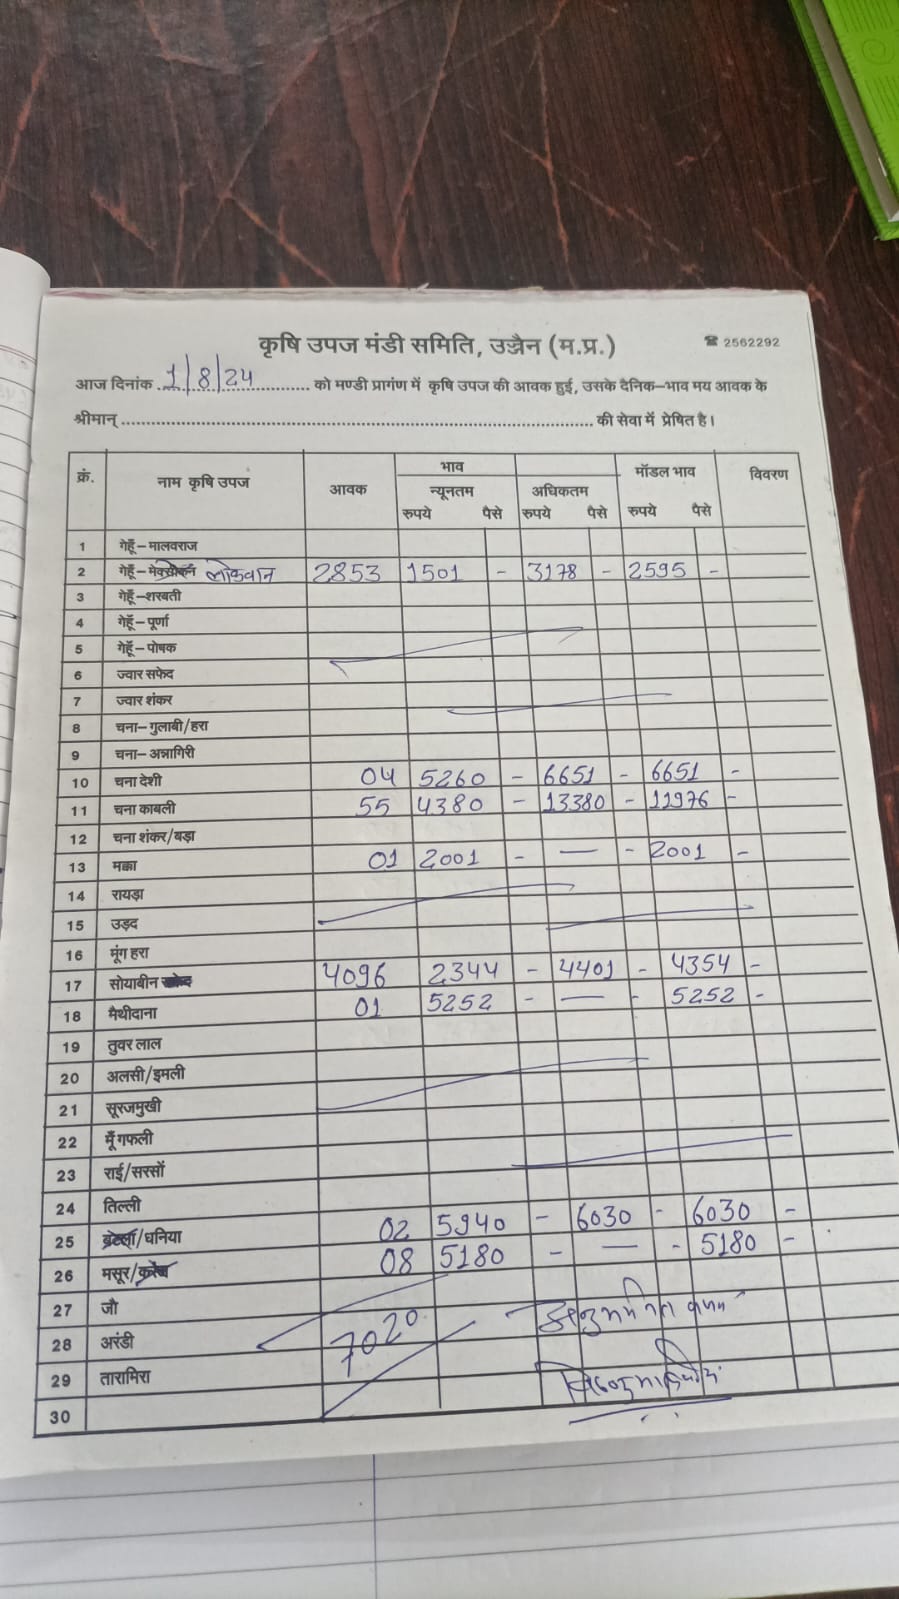 कृषि उपज मंडी समिति, उज्जैन (म.प्र.) ☎ 2562292
आज दिनांक 1/8/24 को मण्डी प्रागंण में कृषि उपज की आवक हुई, उसके दैनिक–भाव मय आवक के
श्रीमान् की सेवा में प्रेषित है।
क्रं. नाम कृषि उपज आवक भाव मॉडल भाव विवरण
न्यूनतम अधिकतम
रुपये पैसे रुपये पैसे रुपये पैसे
1 गेहूँ–मालवराज
2 गेहूँ– लोकवान 2853 1501 - 3178 - 2595 -
3 गेहूँ–शरबती
4 गेहूँ–पूर्णा
5 गेहूँ–पोषक
6 ज्वार सफेद
7 ज्वार शंकर
8 चना–गुलाबी/हरा
9 चना–अन्नागिरी
10 चना देशी 04 5260 - 6651 - 6651 -
11 चना काबली 55 4380 - 13380 - 11976 -
12 चना शंकर/बड़ा
13 मक्का 01 2001 - — - 2001 -
14 रायड़ा
15 उड़द
16 मूंग हरा
17 सोयाबीन 4096 2344 - 4401 - 4354 -
18 मैथीदाना 01 5252 - — - 5252 -
19 तुवर लाल
20 अलसी/इमली
21 सूरजमुखी
22 मूँगफली
23 राई/सरसों
24 तिल्ली
25 /धनिया 02 5940 - 6030 - 6030 -
26 मसूर/ 08 5180 - — - 5180 -
27 जौ
28 अरंडी 7020
29 तारामिरा
30